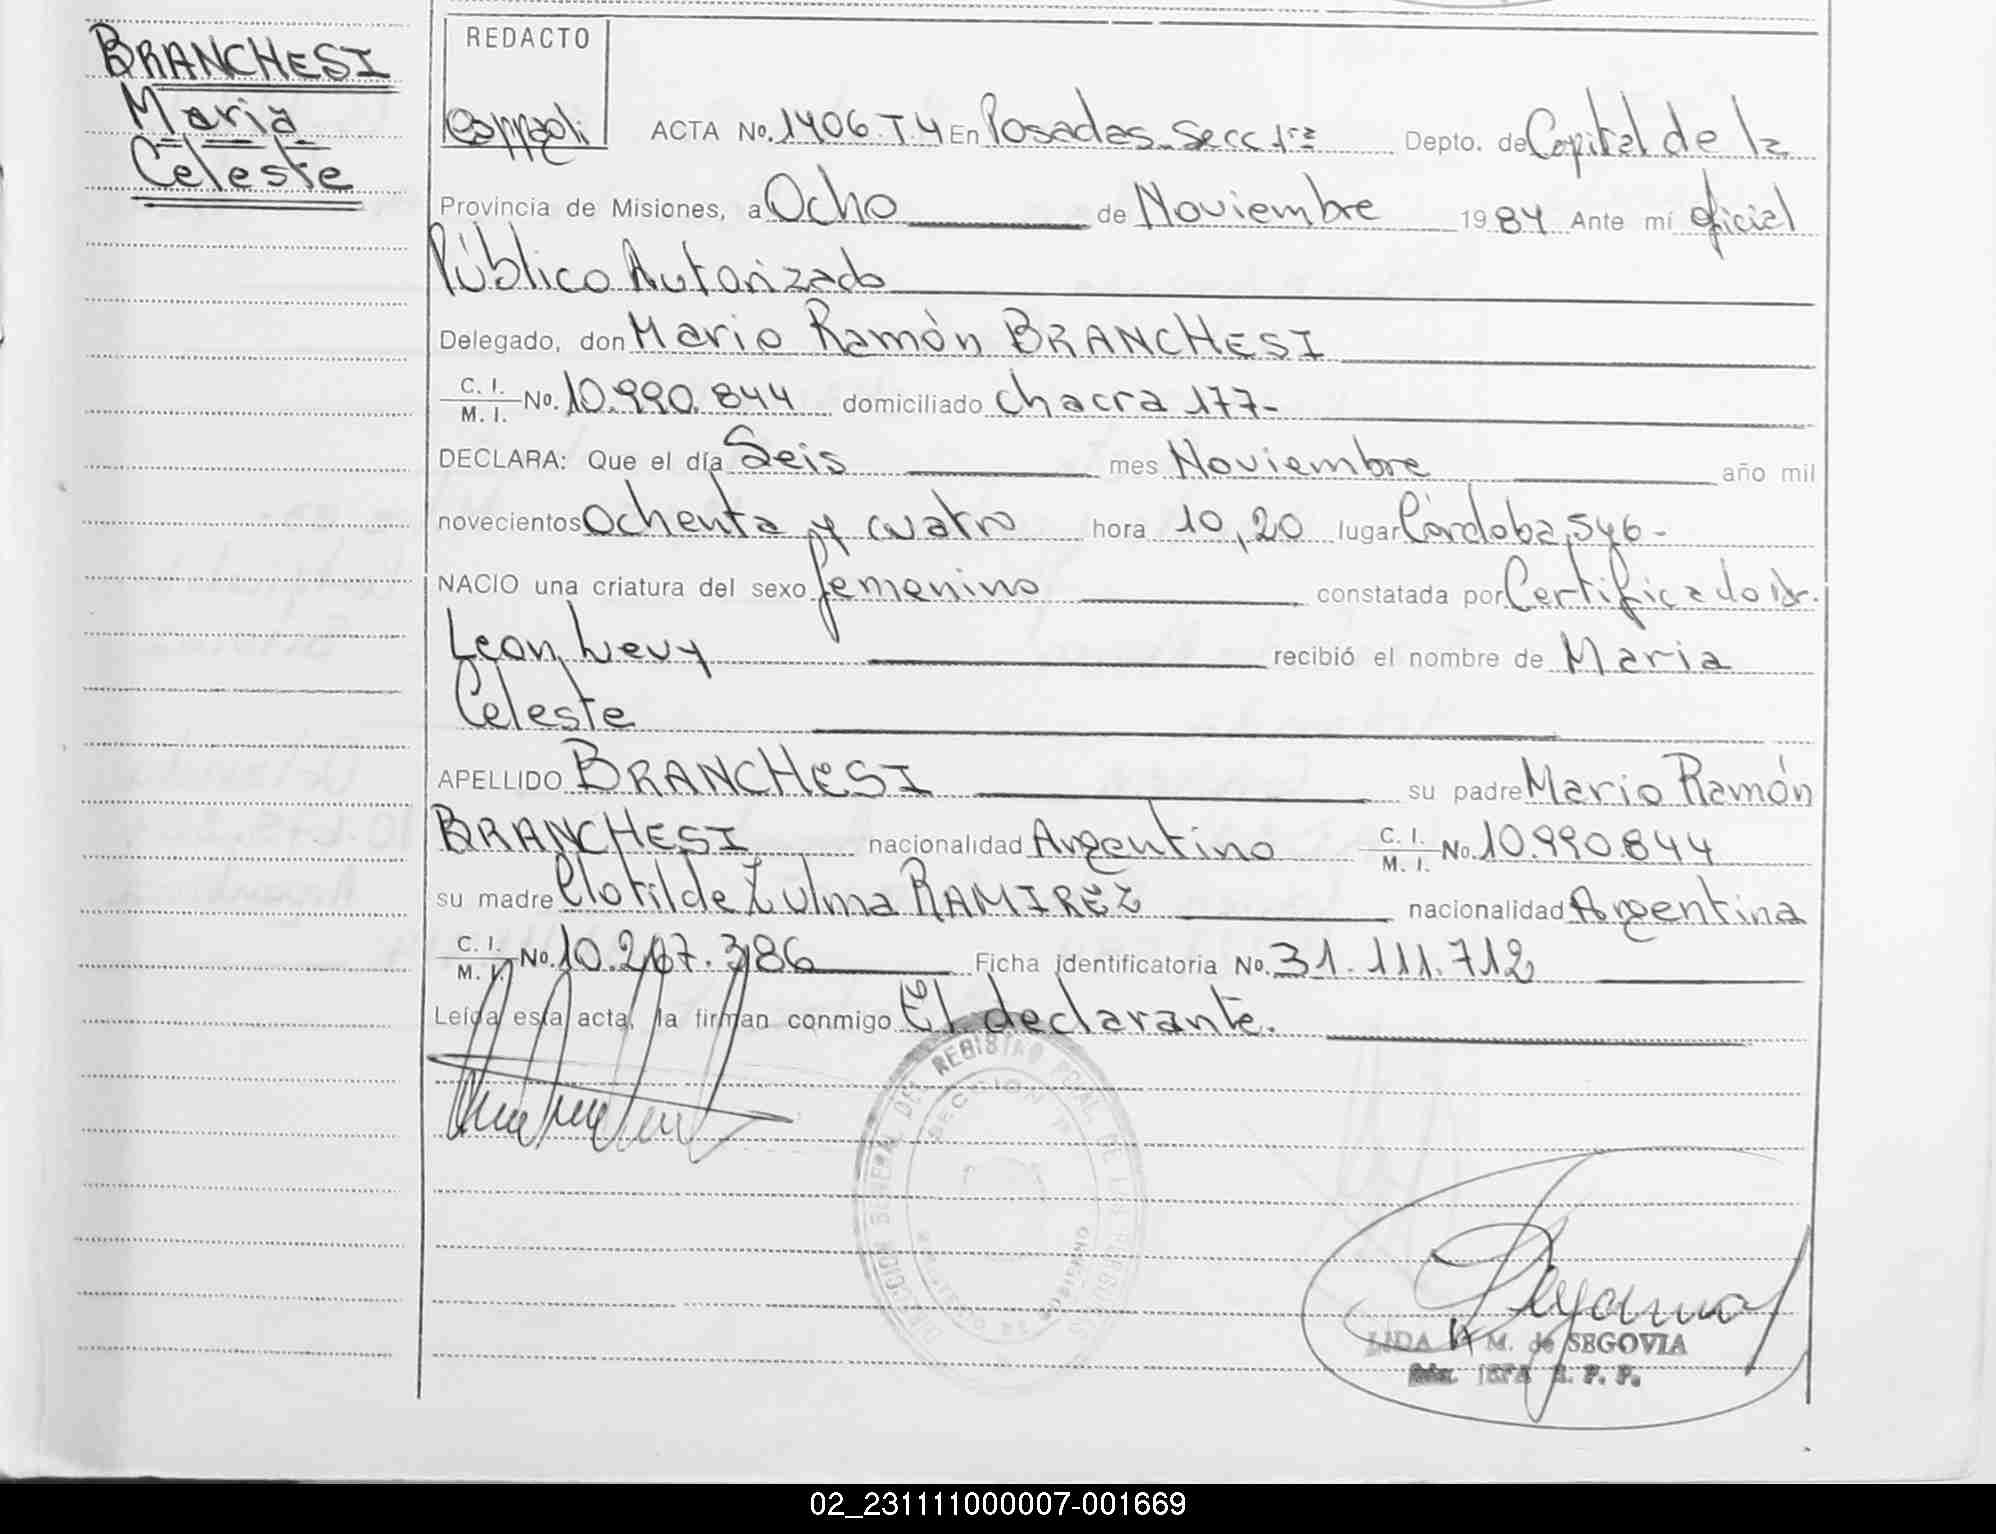 BRANCHESI
Maria
Celeste
REDACTO
ACTA No. 1406.T.4 En Posadas Secc 1ra Depto. de Capital de la
Provincia de Misiones, a Ocho de Noviembre 1984 Ante mí oficial
Público Autorizado
Delegado, don Mario Ramón BRANCHESI
C. I. / M. I. No. 10.990.844 domiciliado chacra 177-
DECLARA: Que el día Seis mes Noviembre año mil
novecientos Ochenta y cuatro hora 10,20 lugar Córdoba 546-
NACIO una criatura del sexo femenino constatada por Certificado Dr.
Leon Levy recibió el nombre de Maria
Celeste
APELLIDO BRANCHESI su padre Mario Ramón
BRANCHESI nacionalidad Argentino C. I. / M. I. No. 10.990.844
su madre Clotilde Zulma RAMIREZ nacionalidad Argentina
C. I. / M. I. No. 10.267.386 Ficha identificatoria No. 31.111.712
Leída esta acta, la firman conmigo El declarante.
DIRECCION GENERAL DEL REGISTRO
SECCION
LIDA M. de SEGOVIA
JEFA
02_231111000007-001669